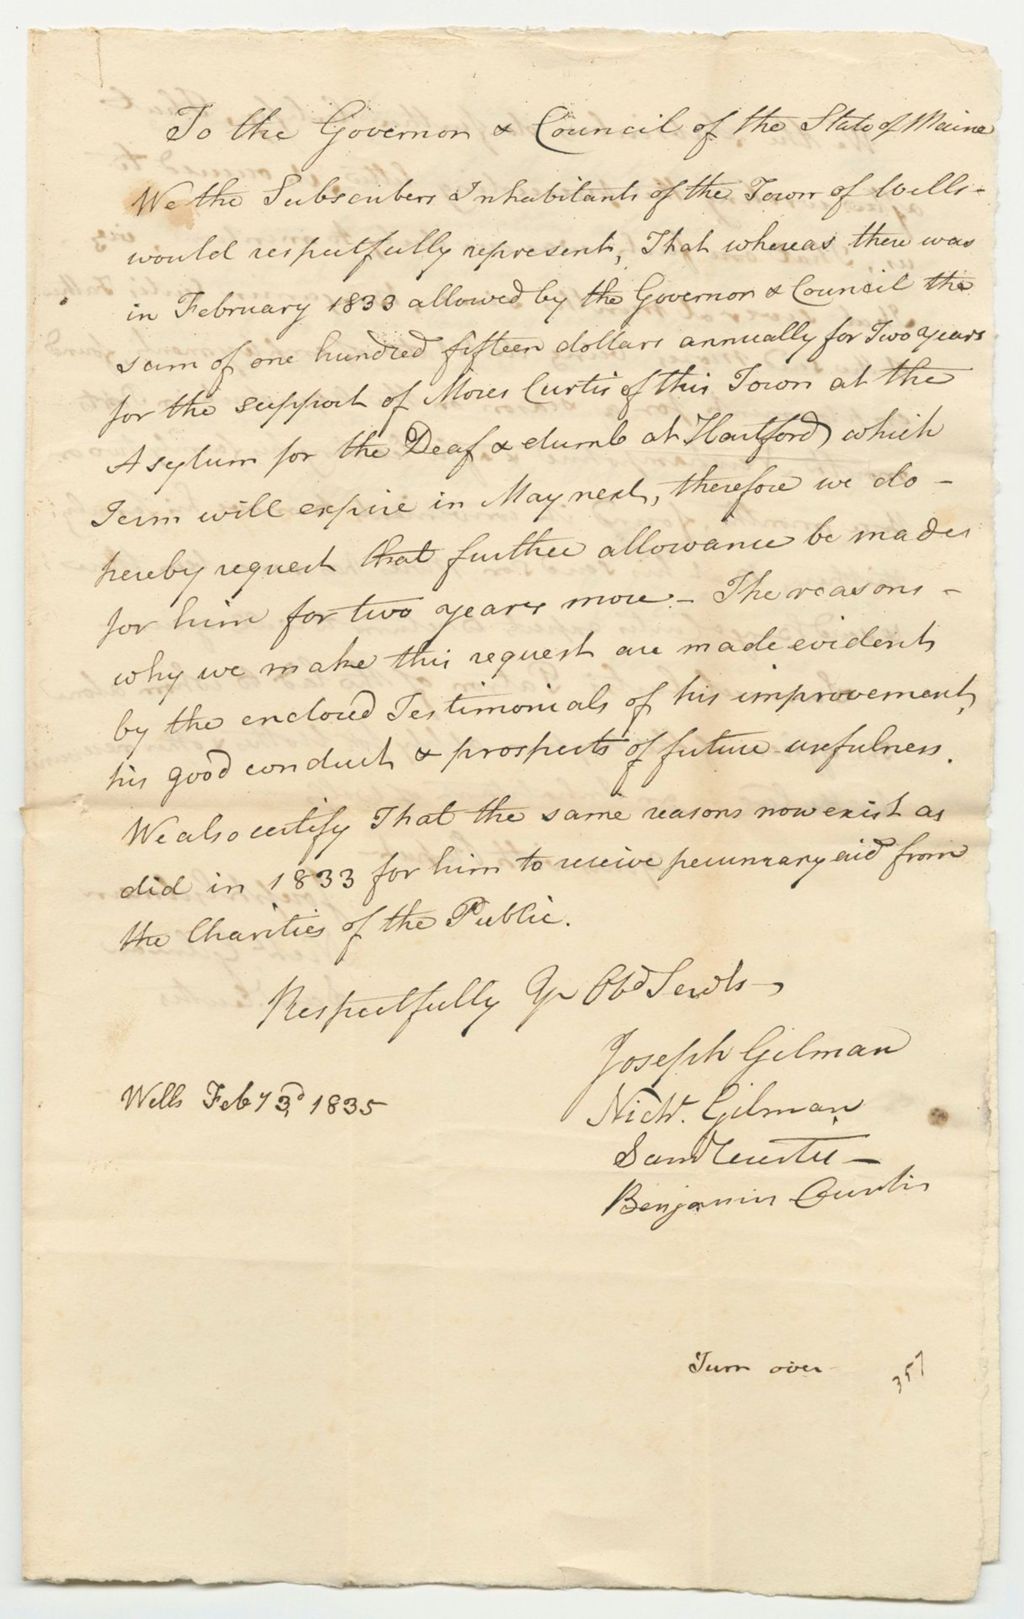 To the Governor & Council of the State of Maine
We the Subscribers Inhabitants of the Town of Wells -
would respectfully represent, That whereas there was
in February 1833 allowed by the Governor & Council the
sum of one hundred fifteen dollars annually for Two years
for the support of Moses Curtis of this Town at the
Asylum for the Deaf & dumb at Hartford, which
Term will expire in May next, therefore we do -
hereby request that further allowance be made
for him for two years more - The reasons -
why we make this request are made evident
by the enclosed Testimonials of his improvement,
his good conduct & prospects of future usefulness.
We also certify That the same reasons now exist as
did in 1833 for him to receive pecuniary aid from
the Charities of the Public.
Respectfully Yr Obd Servts
Joseph Gilman
Wells Feby 3d 1835
Nichs. Gilman
Saml Curtis -
Benjamin Curtis
Turn over
357